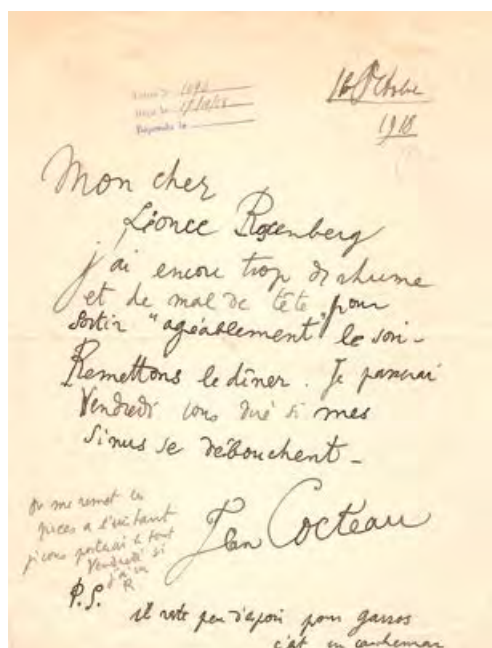 Lettre N° 1091
Reçue le 17/10/18
Répondu le
16 Octobre
1918
Mon cher
Léonce Rosenberg
j'ai encore trop de rhume
et de mal de tête pour
sortir "agréablement" le soir -
Remettons le dîner. Je passerai
Vendredi vous dire si mes
sinus se débouchent -
Jean Cocteau
on me remet les
pièces à l'instant
j'vous porterai le tout
Vendredi si
j'ai un
R
P.S.
il reste peu d'espoir pour
c'est un cauchemar